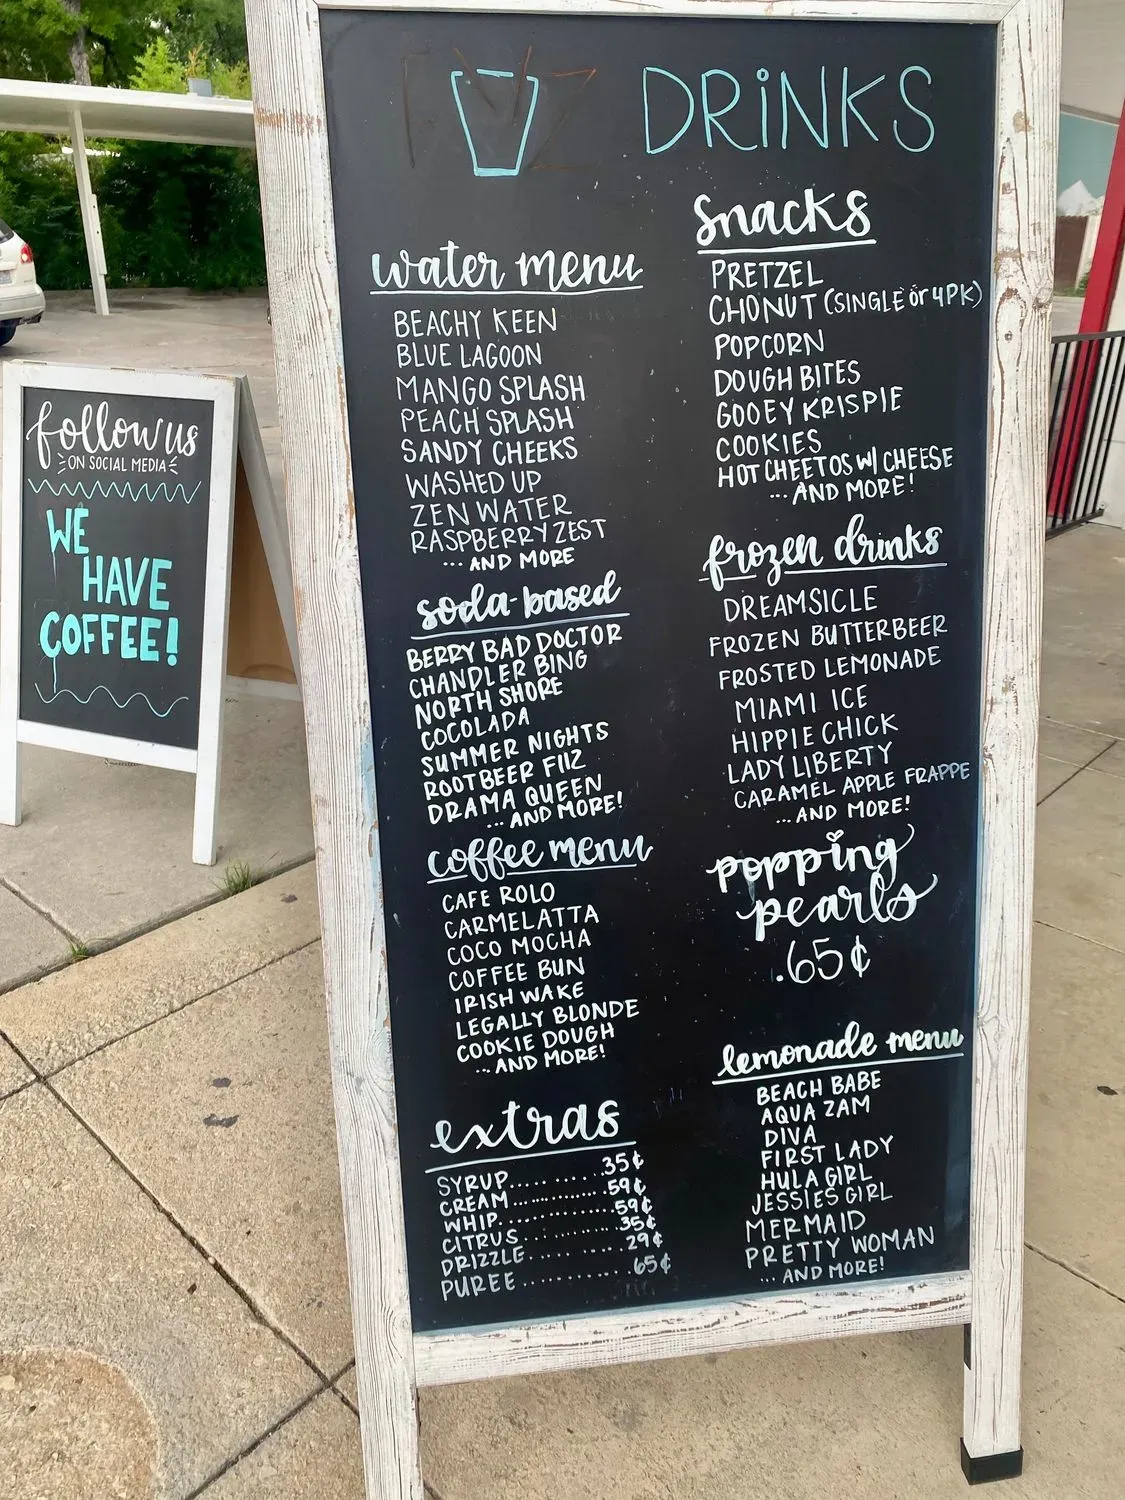 DRiNKS
water menu
BEACHY KEEN
BLUE LAGOON
MANGO SPLASH
PEACH SPLASH
SANDY CHEEKS
WASHED UP
ZEN WATER
RASPBERRY ZEST
... AND MORE
soda-based
BERRY BAD DOCTOR
CHANDLER BING
NORTH SHORE
COCOLADA
SUMMER NIGHTS
ROOTBEER FIIZ
DRAMA QUEEN
... AND MORE!
coffee menu
CAFE ROLO
CARMELATTA
COCO MOCHA
COFFEE BUN
IRISH WAKE
LEGALLY BLONDE
COOKIE DOUGH
... AND MORE!
extras
SYRUP...........35¢
CREAM...........59¢
WHIP............59¢
CITRUS..........35¢
DRIZZLE.........29¢
PUREE...........65¢
snacks
PRETZEL
CHONUT (SINGLE or 4PK)
POPCORN
DOUGH BITES
GOOEY KRISPIE
COOKIES
HOT CHEETOS W/ CHEESE
... AND MORE!
frozen drinks
DREAMSICLE
FROZEN BUTTERBEER
FROSTED LEMONADE
MIAMI ICE
HIPPIE CHICK
LADY LIBERTY
CARAMEL APPLE FRAPPE
... AND MORE!
popping
pearls
.65¢
lemonade menu
BEACH BABE
AQUA ZAM
DIVA
FIRST LADY
HULA GIRL
JESSIES GIRL
MERMAID
PRETTY WOMAN
... AND MORE!
follow us
ON SOCIAL MEDIA
WE
HAVE
COFFEE!